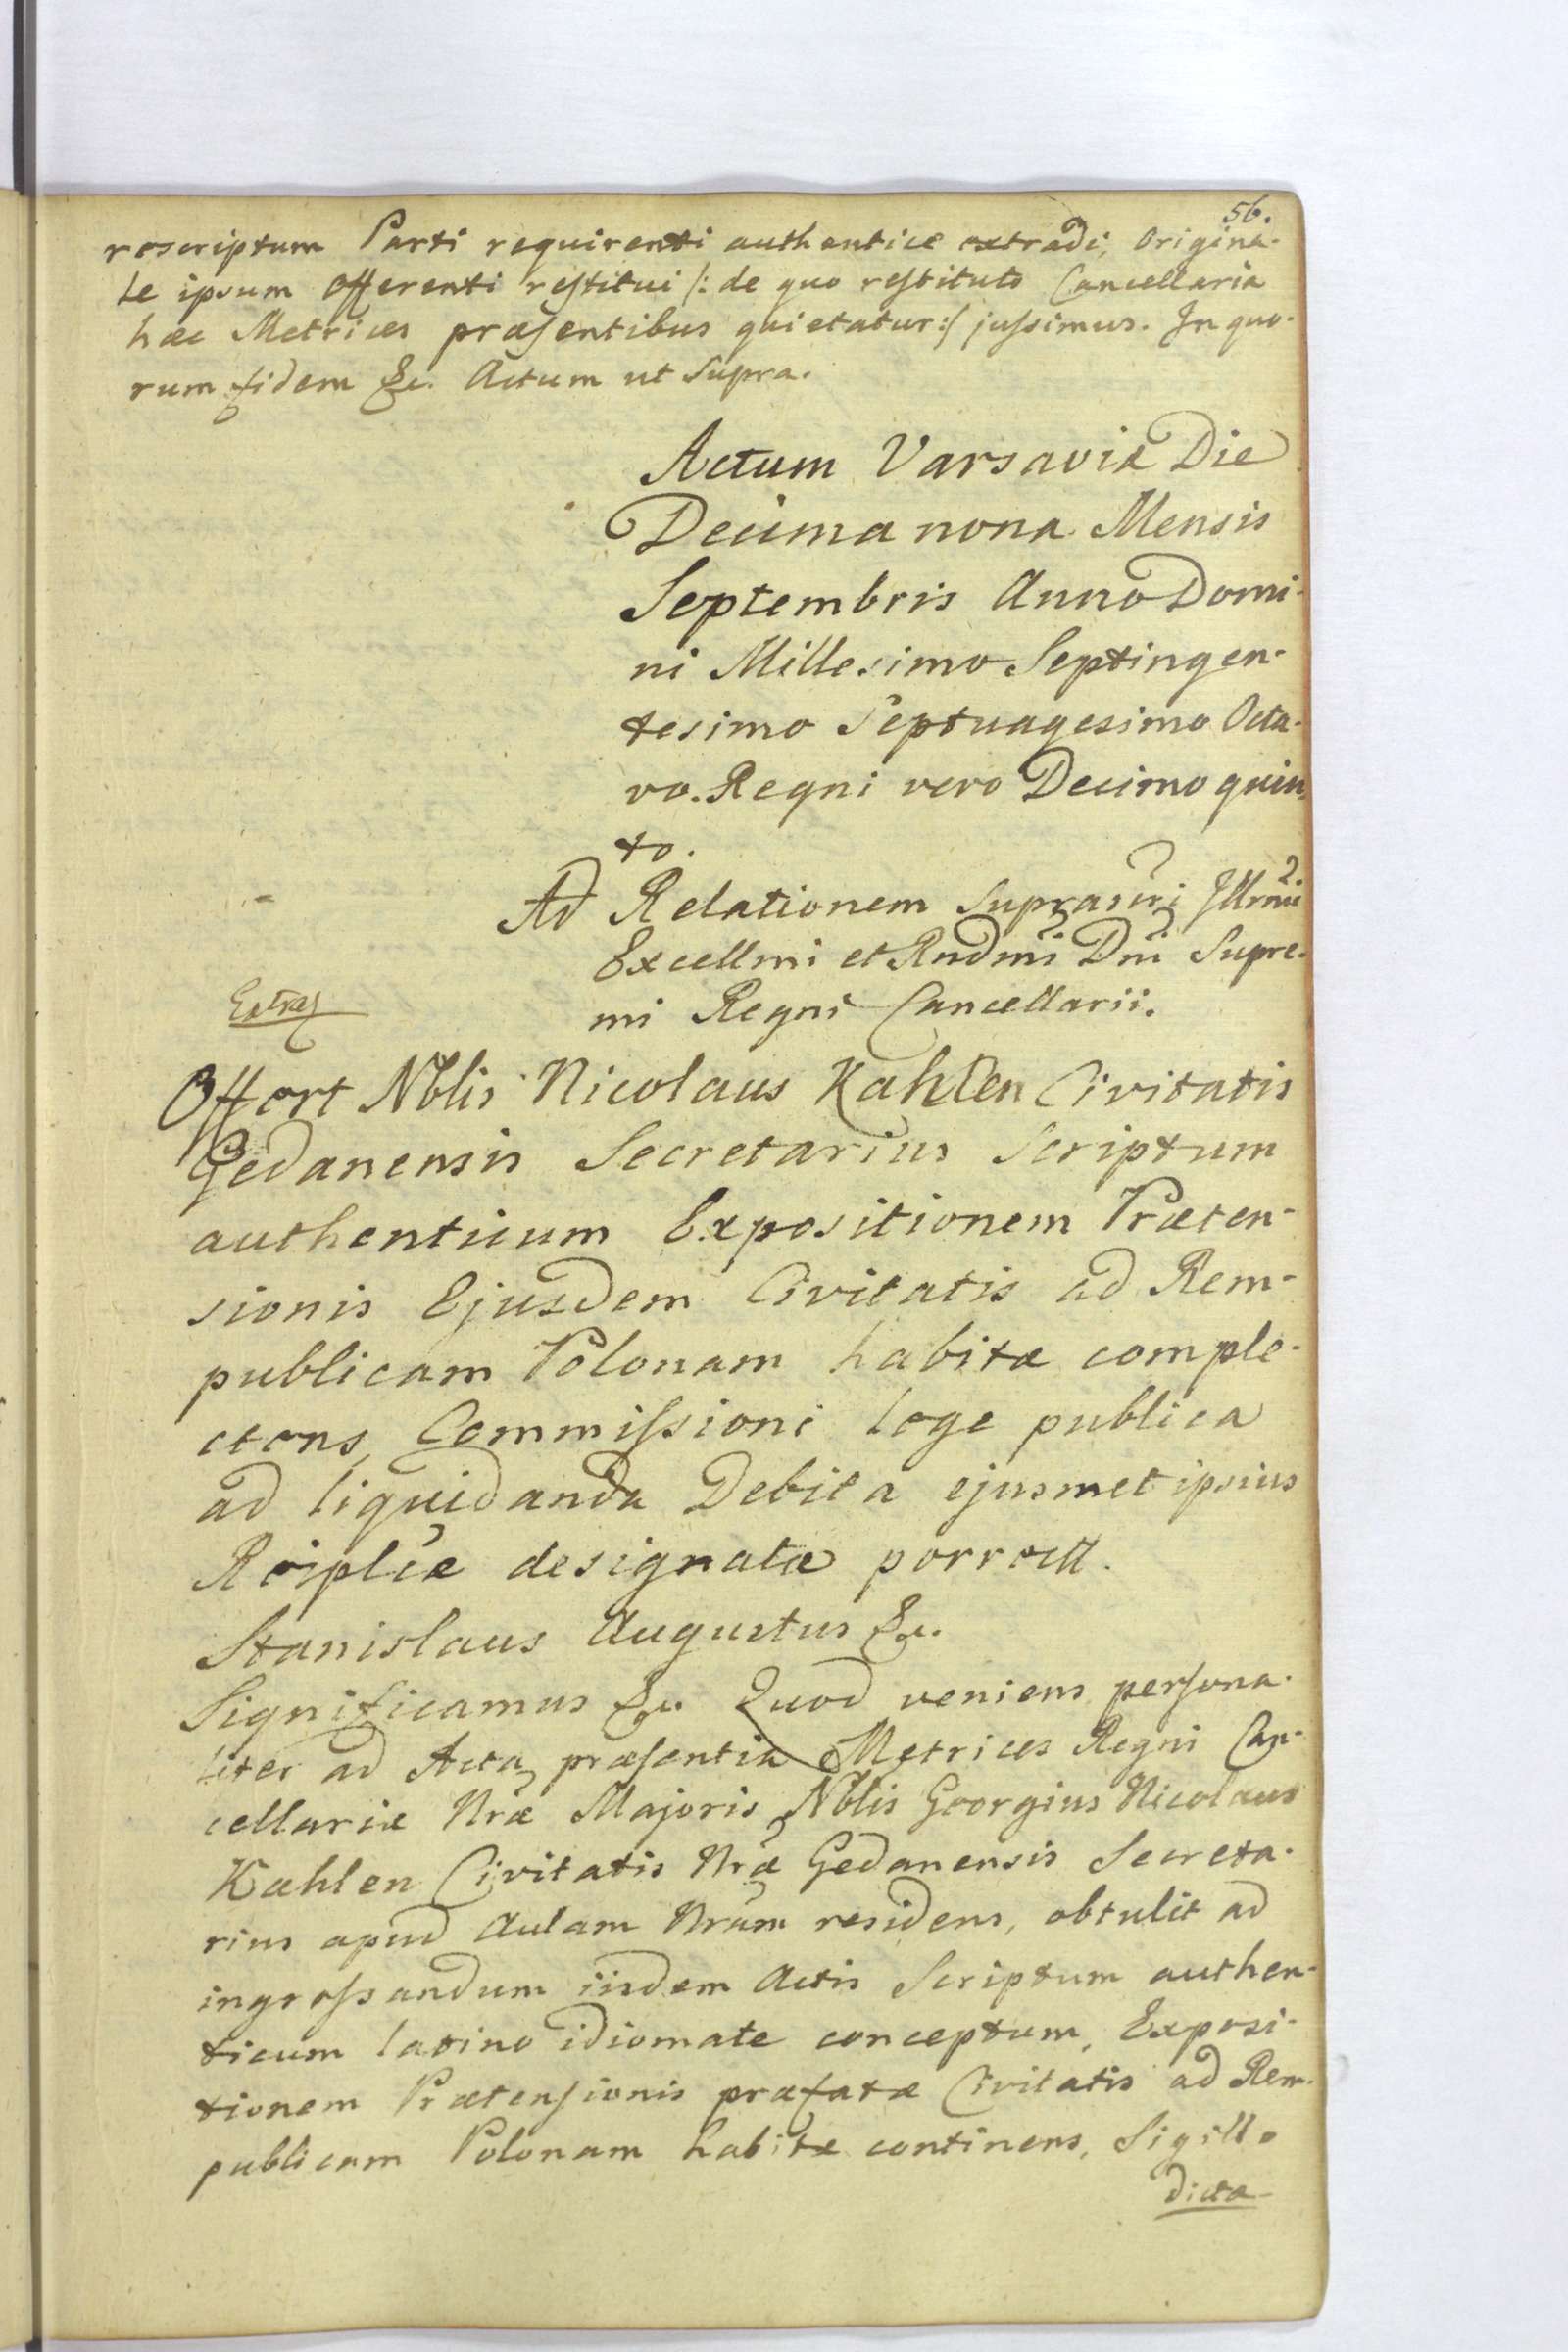 56.
rescriptum Parti requirenti authentice extradi, Origina-
le ipsum Offerenti restitui /: de quo restituto Cancellaria
hæc Metrices præsentibus quietatur :/ jussimus. In quo-
rum fidem &c. Actum ut Supra.
Actum Varsaviæ Die
Decima nona Mensis
Septembris Anno Domi-
ni Millesimo Septingen-
tesimo Septuagesimo Octa-
vo. Regni vero Decimo quin-
to.
Ad Relationem Suprascri Illrmi
Excellmi et Rndmi Dni Supre-
mi Regni Cancellarii.
Offert Nblis Nicolaus Kahlen Civitatis
Gedanensis Secretarius Scriptum
authenticum Expositionem Præten-
sionis Ejusdem Civitatis ad Rem-
publicam Polonam habitæ comple-
ctens, Commissioni lege publica
ad liquidanda Debita ejusmet ipsius
Reiplicæ designatæ porrectt.
Stanislaus Augustus &c.
Significamus &c. Quod veniens persona-
liter ad Acta præsentia Metrices Regni Can-
cellariæ Nræ Majoris Nblis Georgius Nicolaus
Kahlen Civitatis Nræ Gedanensis Secreta-
rius apud Aulam Nram residens, obtulit ad
ingrossandum iisdem Actis Scriptum authen-
ticum latino idiomate conceptum, Exposi-
tionem Prætensionis præfatæ Civitatis ad Rem-
publicam Polonam habitæ continens, Sigillo
dictæ